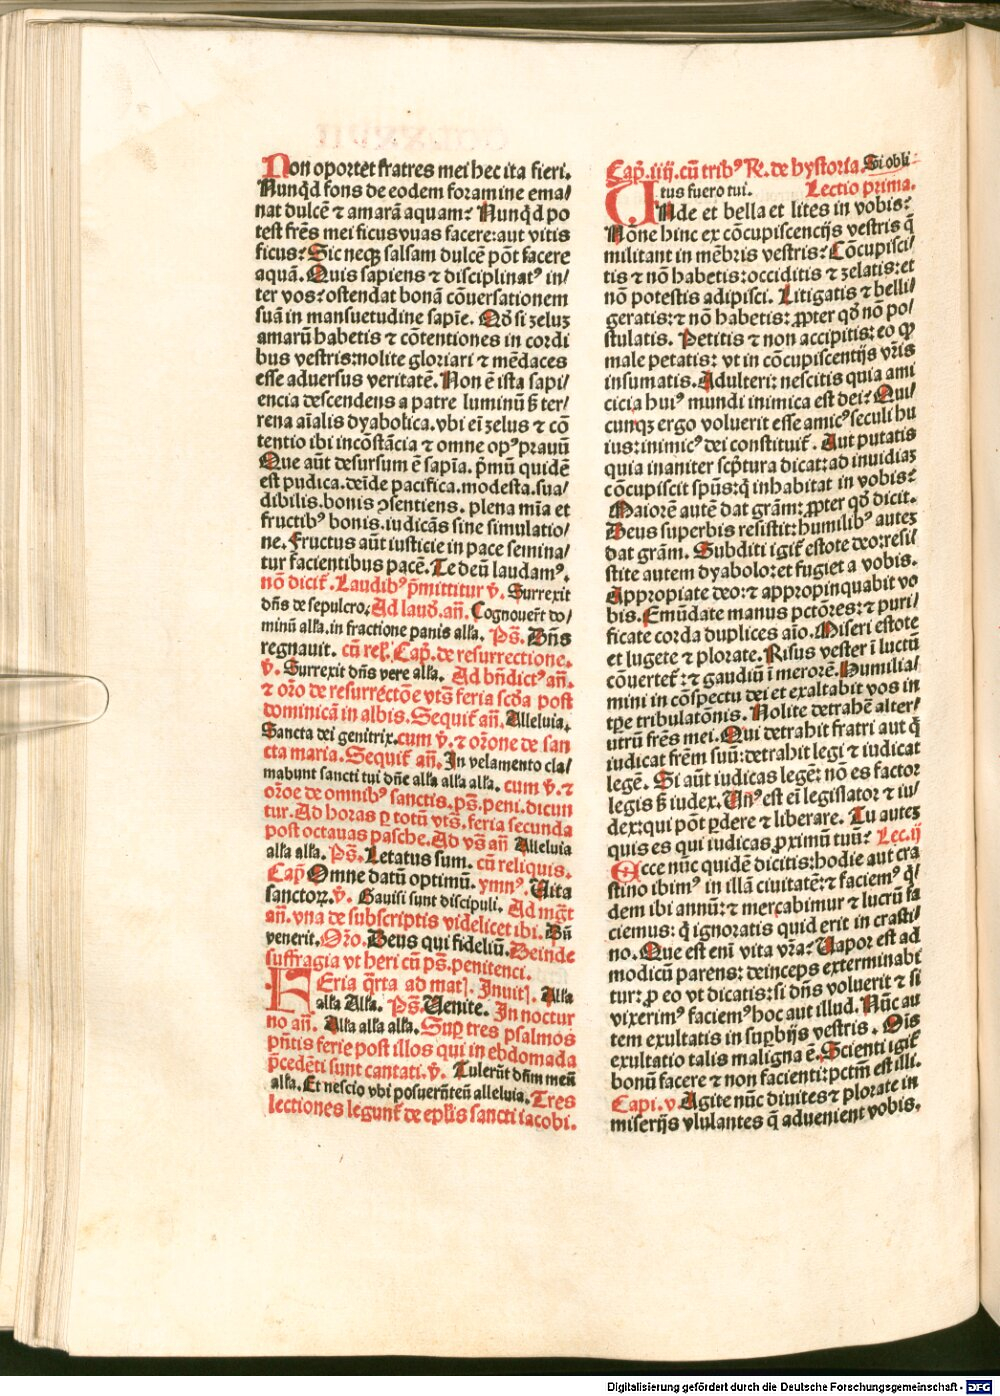 Non oportet fratres mei hec ita fieri.
Nunqd fons de eodem foramine ema/
nat dulcē ⁊ amarā aquam? Nunqd po
test frēs mei ficus vuas facere: aut vitis
ficus? Sic neqꝫ salsam dulcē pōt facere
aquā. Quis sapiens ⁊ disciplinatꝰ in/
ter vos? ostendat bonā cōuersationem
suā in mansuetudine sapīe. Qd̄ si zeluꝫ
amarū habetis ⁊ cōtentiones in cordi
bus vestris: nolite gloriari ⁊ mēdaces
esse aduersus veritatē. Non ē ista sapi/
encia descendens a patre luminū ꝫ ter/
rena aīalis dyabolica. vbi eī zelus ⁊ cō
tentio ibi incōstācia ⁊ omne opꝰ prauū
Que aūt desursum ē sapīa. p̄mū quidē
est pudica. deīde pacifica. modesta. sua/
dibilis. bonis ꝯsentiens. plena mīa et
fructibꝰ bonis. iudicās sine simulatio/
ne. Fructus aūt iusticie in pace semina/
tur facientibus pacē. Te deū laudamꝰ.
nō dicit̄. Laudibꝰ p̄mittitur v̄. Surrexit
dn̄s de sepulcro. Ad laud. an̄. Cognouerūt do/
minū alła. in fractione panis alła. Ps̄. Dn̄s
regnauit. cū rel. Cap̄. de resurrectione.
v̄. Surrexit dn̄s vere alła. Ad bn̄dictꝰ an̄.
⁊ oro de resurrectōe vts̄ feria scd̄a post
dominicā in albis. Sequit̄ an̄. Alleluia.
Sancta dei genitrix. cum v̄. ⁊ orōne de san
cta maria. Sequit̄ an̄. In velamento cla/
mabunt sancti tui dn̄e alła alła alła. cum v̄. ⁊
oroe de omnibꝰ sanctis. ps̄. peni. dicun
tur. Ad horas ꝑ totū vts̄. feria secunda
post octauas pasche. Ad vs̄ an̄ Alleluia
alła alła. Ps̄. Letatus sum. cū reliquis.
Cap̄ Omne datū optimū. ymnꝰ. Uita
sanctoꝝ. v̄. Gauisi sunt discipuli. Ad mgt̄
an̄. vna de subscriptis videlicet ibi. Dū
venerit. Oro. Deus qui fideliū. Deinde
suffragia vt heri cū ps̄. penitenci.
FEria qrta ad mat. Inuit. Alła
alła Alła. Ps̄. Uenite. In noctur
no an̄. Alła alła alła. Sup tres psalmos
pn̄tis ferie post illos qui in ebdomada
p̄cedēti sunt cantati. v̄. Tulerūt dn̄m meū
alła. Et nescio vbi posuerūt eū alleluia. Tres
lectiones legunt̄ de epl̄is sancti iacobi.
Cap̄. iiij. cū tribꝰ R̄. de hystoria. Si obli
tus fuero tui. Lectio prima.
UNde et bella et lites in vobis?
None hinc ex cōcupiscencijs vestris q̄
militant in mēbris vestris? Cōcupisci/
tis ⁊ nō habetis: occiditis ⁊ zelatis: et
nō potestis adipisci. Litigatis ⁊ belli/
geratis: ⁊ nō habetis: ꝓpter qd̄ nō po/
stulatis. Petitis ⁊ non accipitis: eo qꝫ
male petatis: vt in cōcupiscentijs vr̄is
insumatis. Adulteri: nescitis quia ami
cicia huiꝰ mundi inimica est dei? Qui/
cunqꝫ ergo voluerit esse amicꝰ seculi hu
ius: inimicꝰ dei constituit̄. Aut putatis
quia inaniter scp̄tura dicat: ad inuidiaꝫ
cōcupiscit spūs: q̄ inhabitat in vobis?
Maiorē autē dat grām: ꝓpter qd̄ dicit.
Deus superbis resistit: humilibꝰ auteꝫ
dat grām. Subditi igit̄ estote deo: resi/
stite autem dyabolo: et fugiet a vobis.
Appropiate deo: ⁊ appropinquabit vo
bis. Emūdate manus pctōres: ⁊ puri/
ficate corda duplices aīo. Miseri estote
et lugete ⁊ plorate. Risus vester ī luctū
cōuertet̄: ⁊ gaudiū ī merorē. Humilia/
mini in cōspectu dei et exaltabit vos in
tpe tribulatōnis. Nolite detrahē alter/
utrū frēs mei. Qui detrahit fratri aut q̄
iudicat frēm suū: detrahit legi ⁊ iudicat
legē. Si aūt iudicas legē: nō es factor
legis ꝫ iudex. Unꝰ est eī legislator ⁊ iu/
dex: qui pōt ꝑdere ⁊ liberare. Tu auteꝫ
quis es qui iudicas ꝓximū tuū? Lec. ij
Ecce nūc quidē dicitis: hodie aut cra
stino ibimꝰ in illā ciuitatē: ⁊ faciemꝰ q̄/
dem ibi annū: ⁊ mercabimur ⁊ lucrū fa
ciemus: q̄ ignoratis quid erit in crasti/
no. Que est enī vita vr̄a? Uapor est ad
modicū parens: deinceps exterminabi
tur: ꝓ eo vt dicatis: si dn̄s voluerit ⁊ si
vixerimꝰ faciemꝰ hoc aut illud. Nūc au
tem exultatis in supbijs vestris. Oīs
exultatio talis maligna ē. Scienti igit̄
bonū facere ⁊ non facienti: pctm̄ est illi.
Capi. v. Agite nūc diuites ⁊ plorate in
miserijs vlulantes q̄ aduenient vobis.
Digitalisierung gefördert durch die Deutsche Forschungsgemeinschaft - DFG